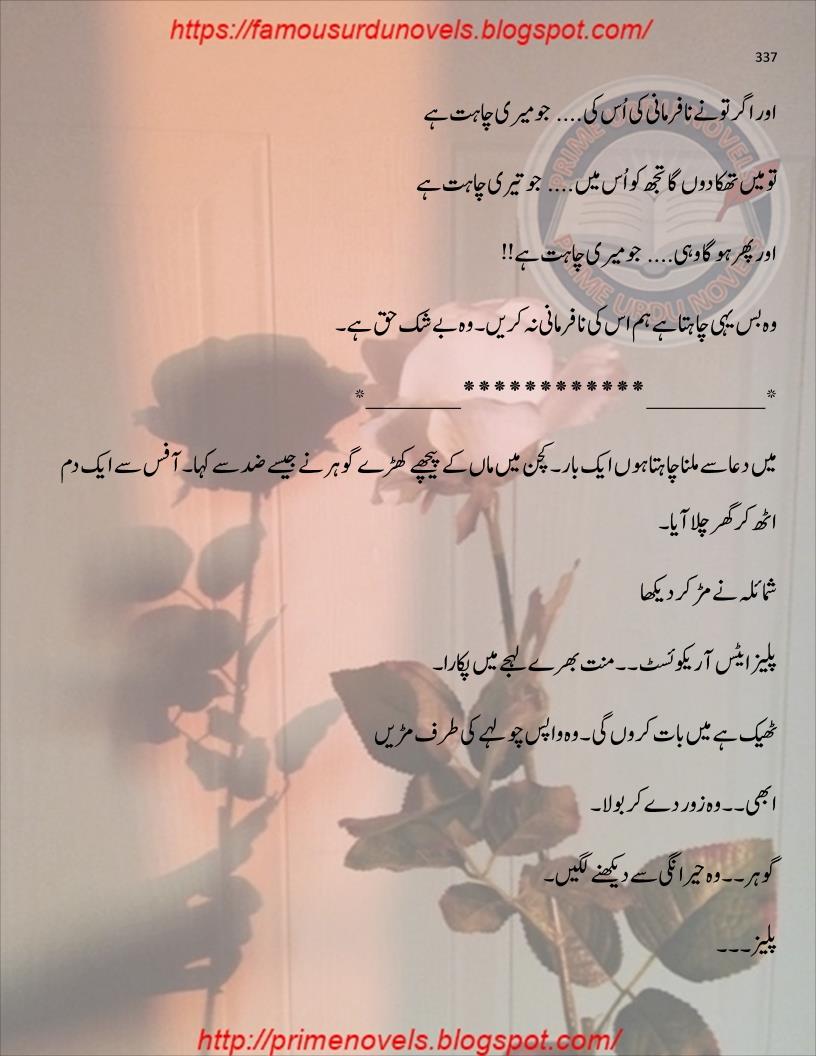 https://famousurdunovels.blogspot.com/
337
PRIME URDU NOVELS
PRIME URDU NOVELS
اور اگر تو نے نافرمانی کی اُس کی.... جو میری چاہت ہے
تو میں تھکا دوں گا تجھ کو اُس میں.... جو تیری چاہت ہے
اور پھر ہو گا وہی.... جو میری چاہت ہے!!
وہ بس یہی چاہتا ہے ہم اس کی نافرمانی نہ کریں۔ وہ بے شک حق ہے۔
*__________************__________*
میں دعا سے ملنا چاہتا ہوں ایک بار۔ کچن میں ماں کے پیچھے کھڑے گوہر نے جیسے ضد سے کہا۔ آفس سے ایک دم
اٹھ کر گھر چلا آیا۔
شمائلہ نے مڑ کر دیکھا
پلیز ایٹس آ ریکوئسٹ۔۔ منت بھرے لہجے میں پکارا۔
ٹھیک ہے میں بات کروں گی۔ وہ واپس چولہے کی طرف مڑیں
ابھی۔۔ وہ زور دے کر بولا۔
گوہر۔۔ وہ حیرانگی سے دیکھنے لگیں۔
پلیز۔۔۔
http://primenovels.blogspot.com/